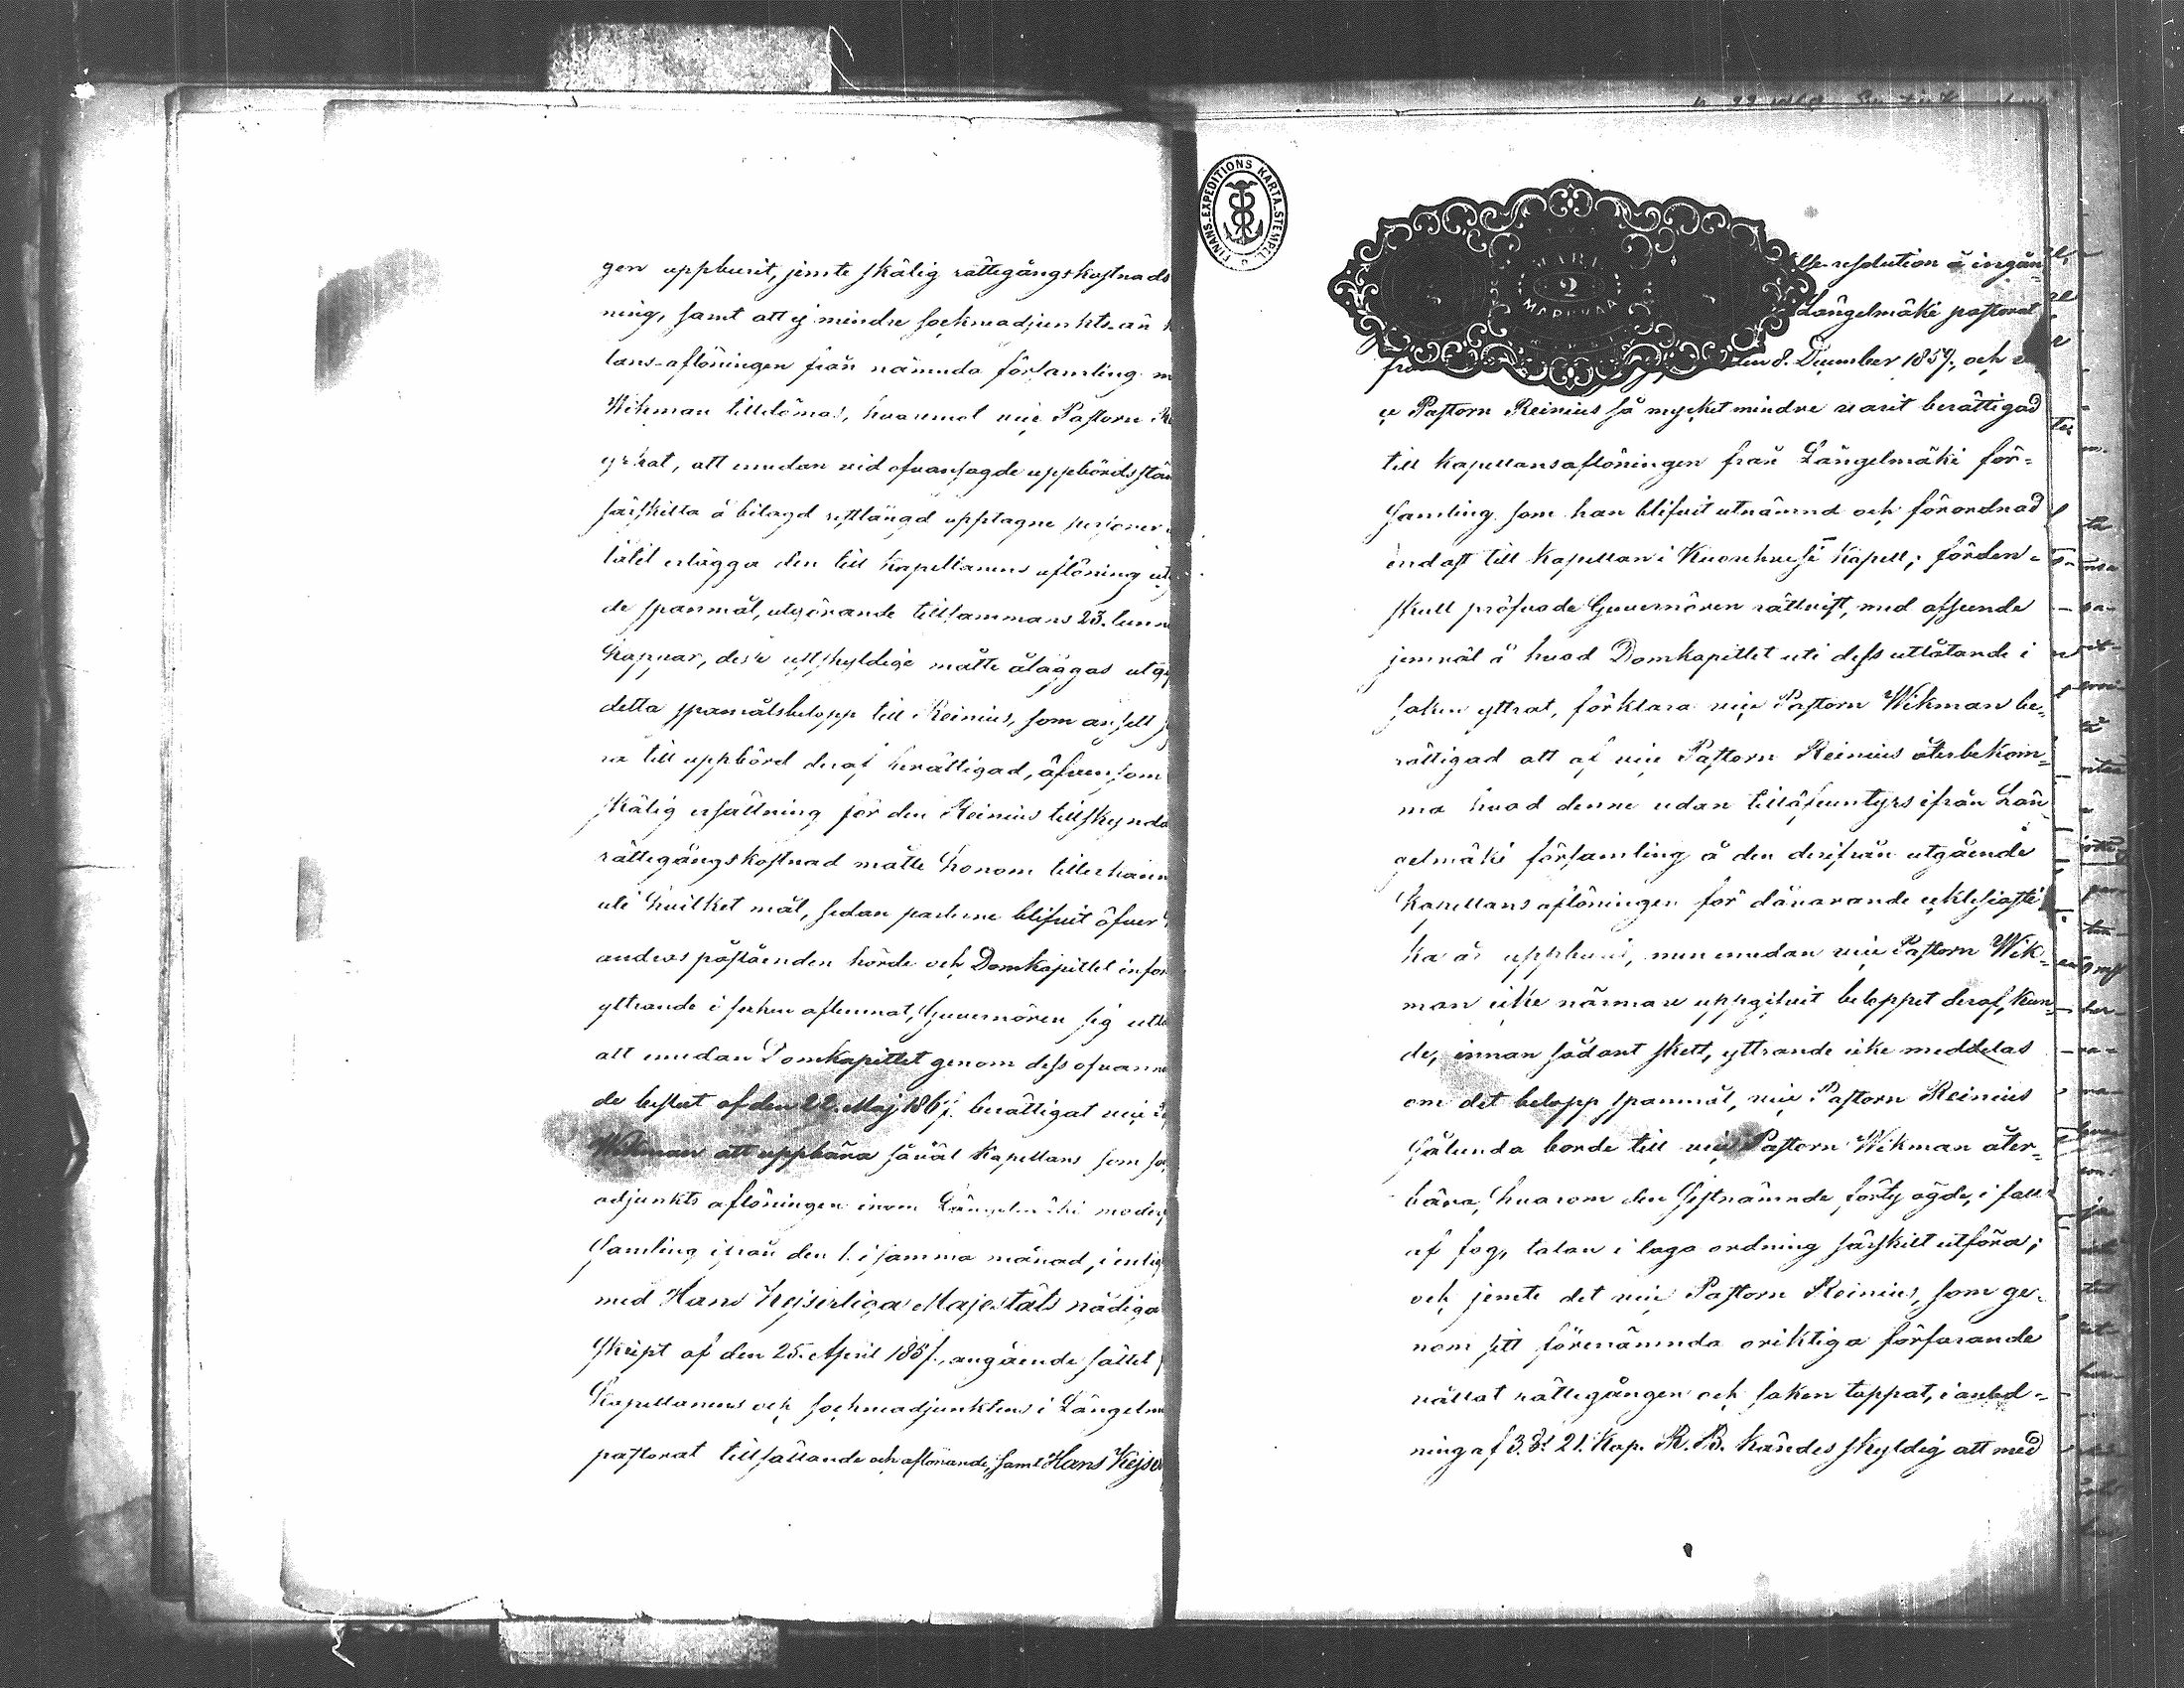 gen uppburit, jemte skälig rättegångskostnads
ning, samt att ej mindre sockneadjunkts- än
lans-aflöningen från nämnda församling
Wikman tilldömas, hvaremot vice Pastorn
yrkat, att emedan vid ofvansagde uppbördsstäm
särskilta å bilagd restlängd upptagne personer
låtit erlägga den till Kapellanens aflöning
de spanmål, utgörande tillsammans 23. tunn
kappar, desse uttskyldige måtte åläggas utgif
detta spanmålsbelopp till Reinius, som ansett
ra till uppbörd deraf berättigad, äfvensom
skälig ersättning för den Reinius tillskynda
rättegångskostnad måtte honom tillerkänn
uti hvilket mål, sedan parterne blifvit öfver
andras påståenden hörde och Domkapitlet infor
yttrande i saken aflemnat, Guvernören sig utlå
att emedan Domkapitlet genom dess ofvann
de beslut af den 22. Maj 186 berättigat vice
Wikman att uppbära såväl Kapellans som so
adjunkts aflöningen inom Längelmäki moder
samling ifrån den 1. i samma månad, i enlig
med Hans Kejserliga Majestäts nådiga
skript af den 25. April 185, angående sättet
Kapellanens och sockneadjunktens i Längelm
pastorat tillsättande och aflönande, samt Hans Kejser
FINANS-EXPEDITIONS KARTA.STEMPEL
MARK
2
MARKKAA
resolution å ingån
Längelmäki pastorat
den 8. December 1859, och
ce Pastorn Reinius så mycket mindre varit berättigad
till Kapellansaflöningen från Längelmäki för-
samling som han blifvit utnämnd och förordnad
endast till Kapellan i Kuorehvesi Kapell; förden-
skull pröfvade Guvernören rättvist, med afseende
jemväl å hvad Domkapitlet uti dess utlåtande i
saken yttrat, förklara vice Pastorn Wikman be-
rättigad att af vice Pastorn Reinius återbekom-
ma hvad denne utan tillåfventyrs ifrån Län
gelmäki församling å den derifrån utgående
Kapellansaflöningen för dåvarande ecklesiasti
ka år uppburit, men emedan vice Pastorn Wik-
man icke närmare uppgifvit beloppet deraf, kun-
de, innan sådant skett, yttrande icke meddelas
om det belopp spanmål, vice Pastorn Reinius
sålunda borde till vice Pastorn Wikman åter-
bära, hvarom den sistnämnde förty ägde, i fall
af fog, talan i laga ordning särskilt utföra;
och jemte det vice Pastorn Reinius, som ge-
nom sitt förenämnda oriktiga förfarande
vållat rättegången och saken tappat, i anled-
ning af 3. § 21. Kap. R. B. kändes skyldig att med